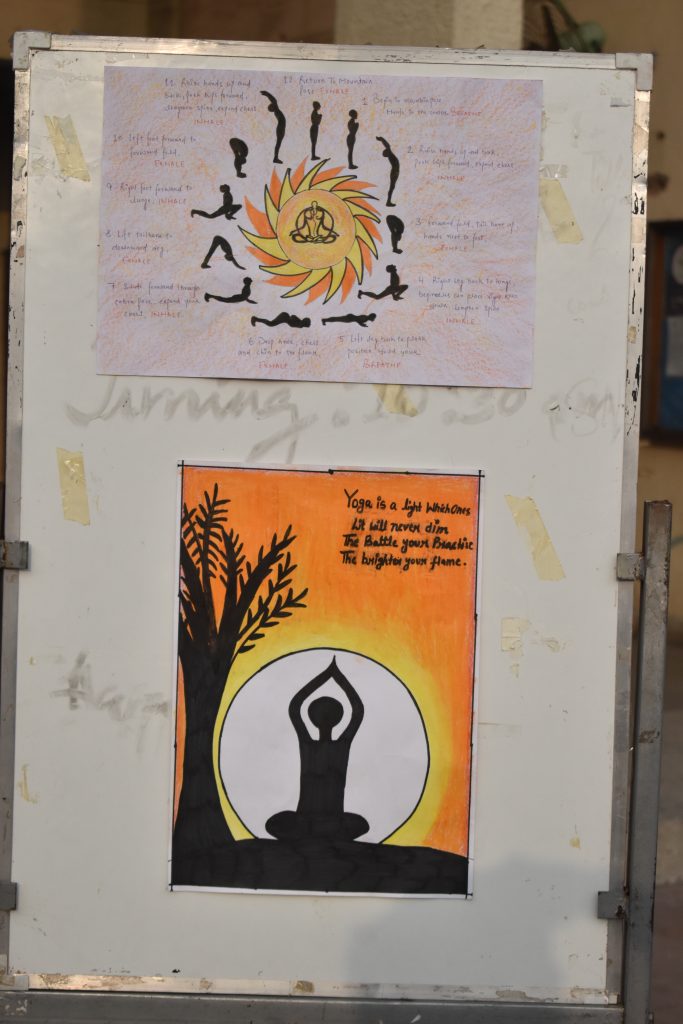 12. Return To Mountain
Pose EXHALE
1. Begin to mountain pose.
Hands to the center BREATHE
2. Raise hands up and back,
Push hips forward, expand chest.
INHALE
3. Forward fold, Till
hands next to feet.
EXHALE
4. Right leg back to lunge,
knee
down, lengthen spine
INHALE
5. Lift leg back to plank
position
BREATHE
6. Drop knee, chest
and chin to the floor,
EXHALE
7. forward through
cobra pose, expand your
chest. INHALE
8. Lift to
downward dog.
EXHALE
9. Right foot forward to
lunge. INHALE
10. Left foot forward to
forward fold.
EXHALE
11. Raise hands up and
back, push hips forward,
lengthen spine, expand chest.
INHALE
10:30
Yoga is a light Which Ones
Lit will never dim
The Battle your Practic
The brighter your flame.